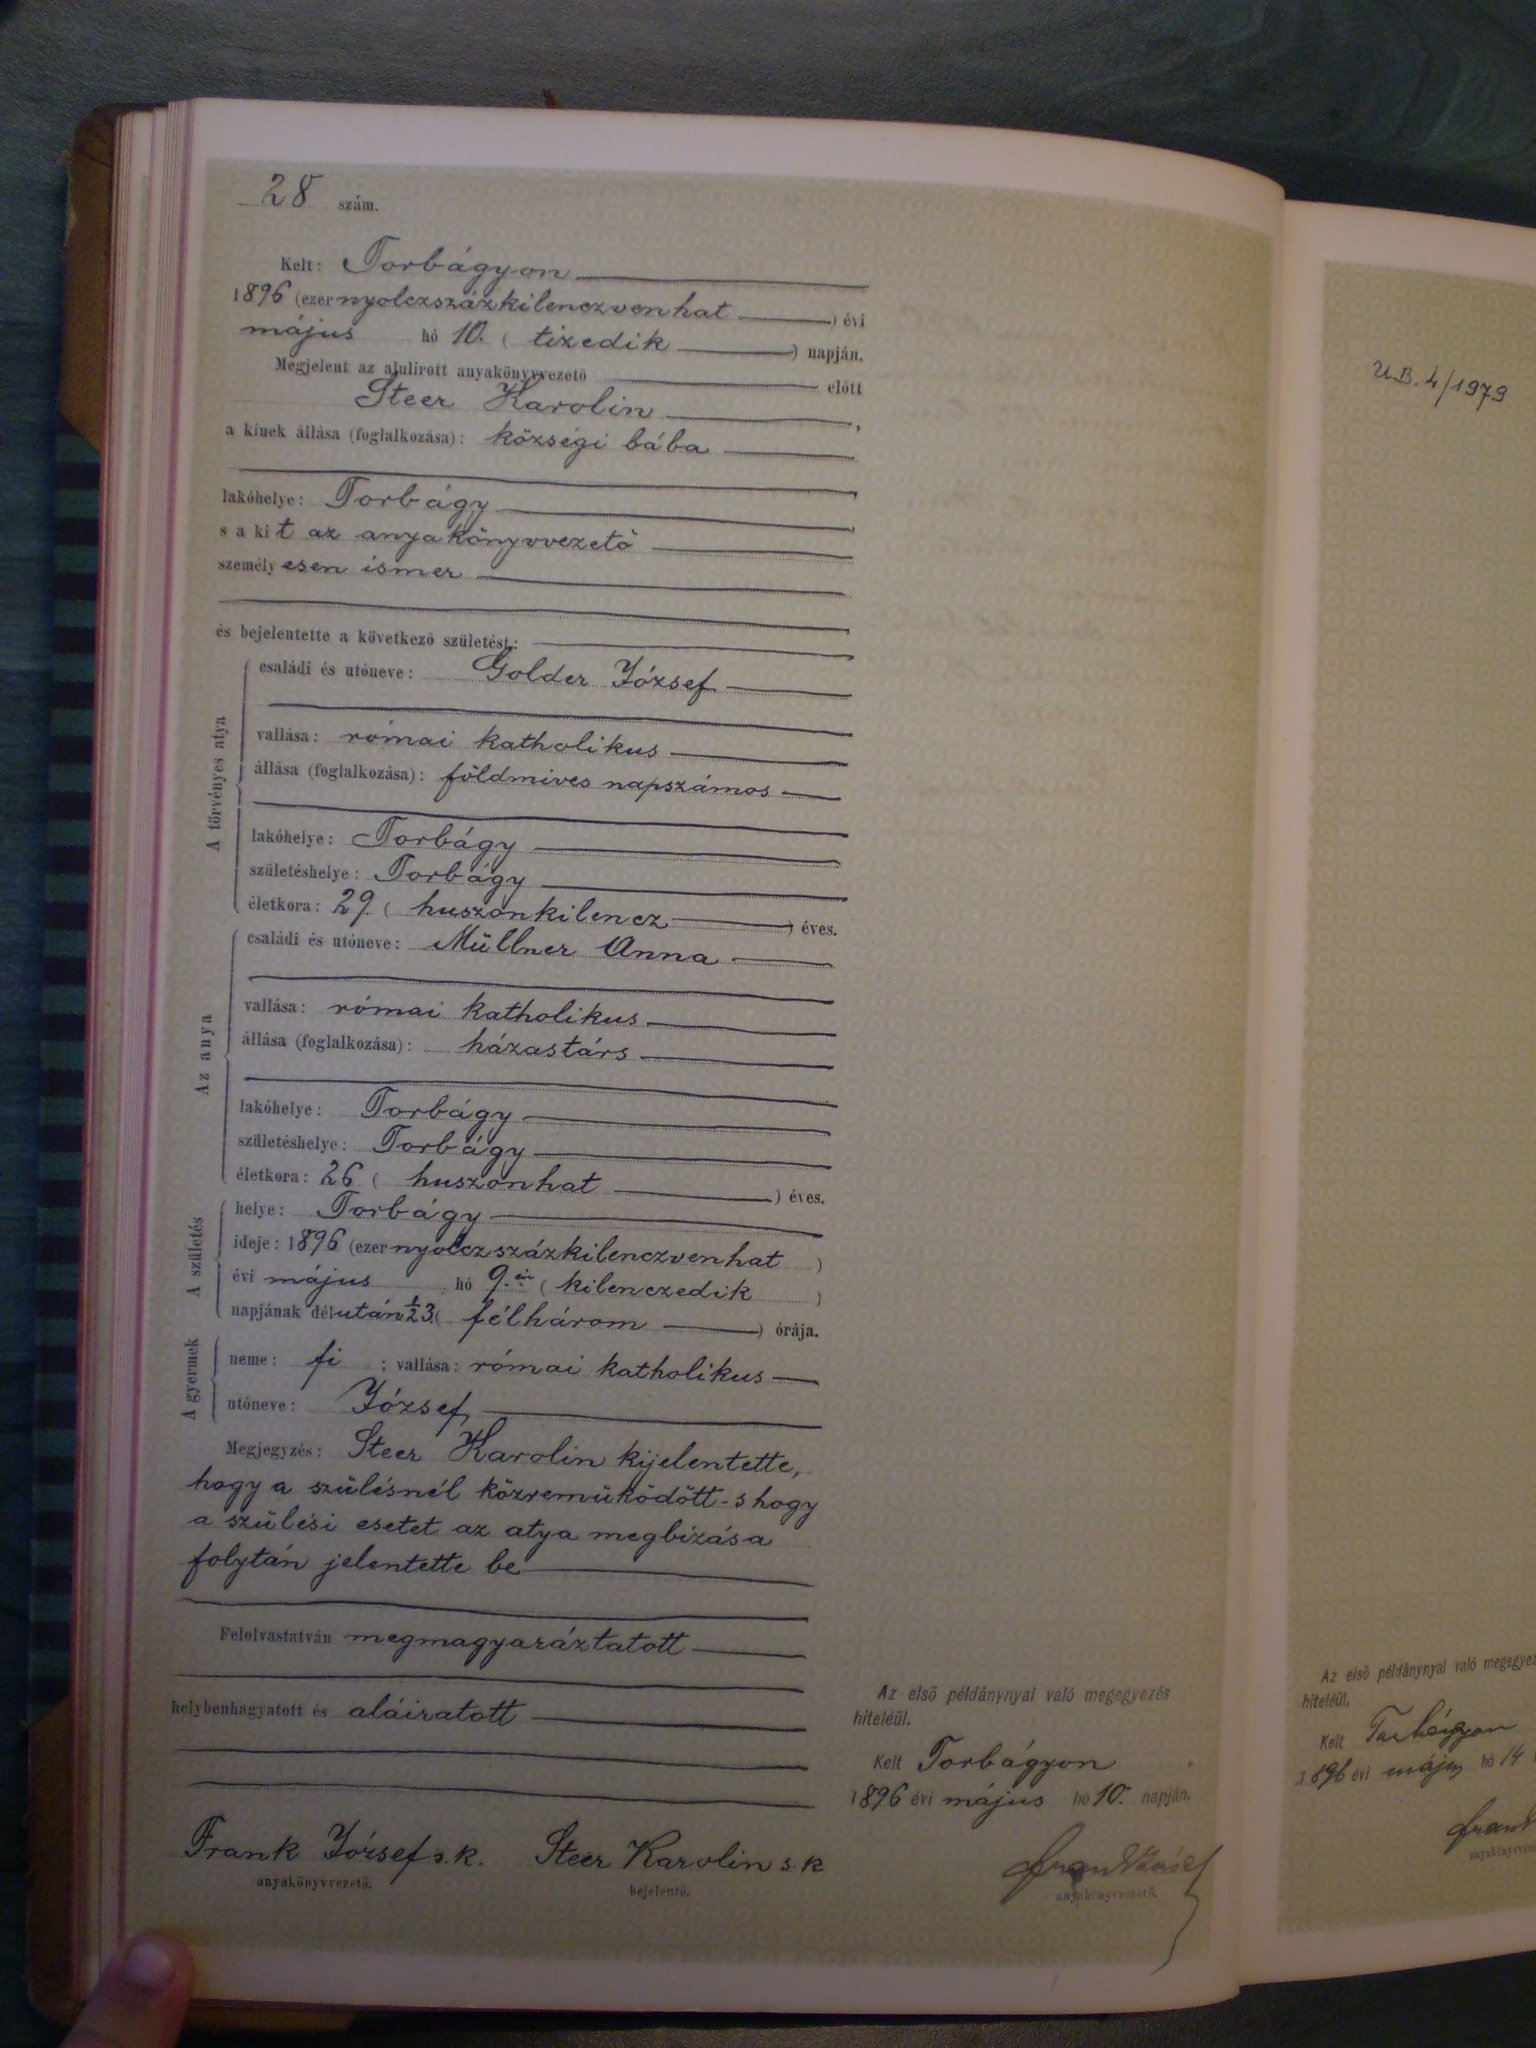 28 szám.
Kelt: Torbágyon
1896 (ezer nyolczszázkilenczvenhat) évi
május hó 10. (tizedik) napján.
Megjelent az alulirott anyakönyvvezető előtt
Steer Karolin,
a kinek állása (foglalkozása): községi bába
lakóhelye: Torbágy
s a kit az anyakönyvvezető
személyesen ismer
és bejelentette a következő születést:
A törvényes atya
családi és utóneve: Golder József
vallása: római katholikus
állása (foglalkozása): földmives napszámos
lakóhelye: Torbágy
születéshelye: Torbágy
életkora: 29. (huszonkilencz) éves.
Az anya
családi és utóneve: Müllner Anna
vallása: római katholikus
állása (foglalkozása): házastárs
lakóhelye: Torbágy
születéshelye: Torbágy
életkora: 26 (huszonhat) éves.
A születés
helye: Torbágy
ideje: 1896 (ezer nyolczszázkilenczvenhat)
évi május hó 9.-én (kilenczedik)
napjának délután ½3. (félhárom) órája.
A gyermek
neme: fi; vallása: római katholikus
utóneve: József
Megjegyzés: Steer Karolin kijelentette,
hogy a szülésnél közremüködött - s hogy
a szülési esetet az atya megbizása
folytán jelentette be
Felolvastatván megmagyaráztatott
helybenhagyatott és aláiratott
Frank József s.k. Steer Karolin s.k
anyakönyvvezető. bejelentő.
Az első példánynyal való megegyezés
hiteléül.
Kelt Torbágyon
1896 évi május hó 10. napján.
Frank József
anyakönyvvezető.
U.B. 4/1979
Az első példánynyal való
hiteléül.
Kelt Torbágyon
1896 évi május hó 14